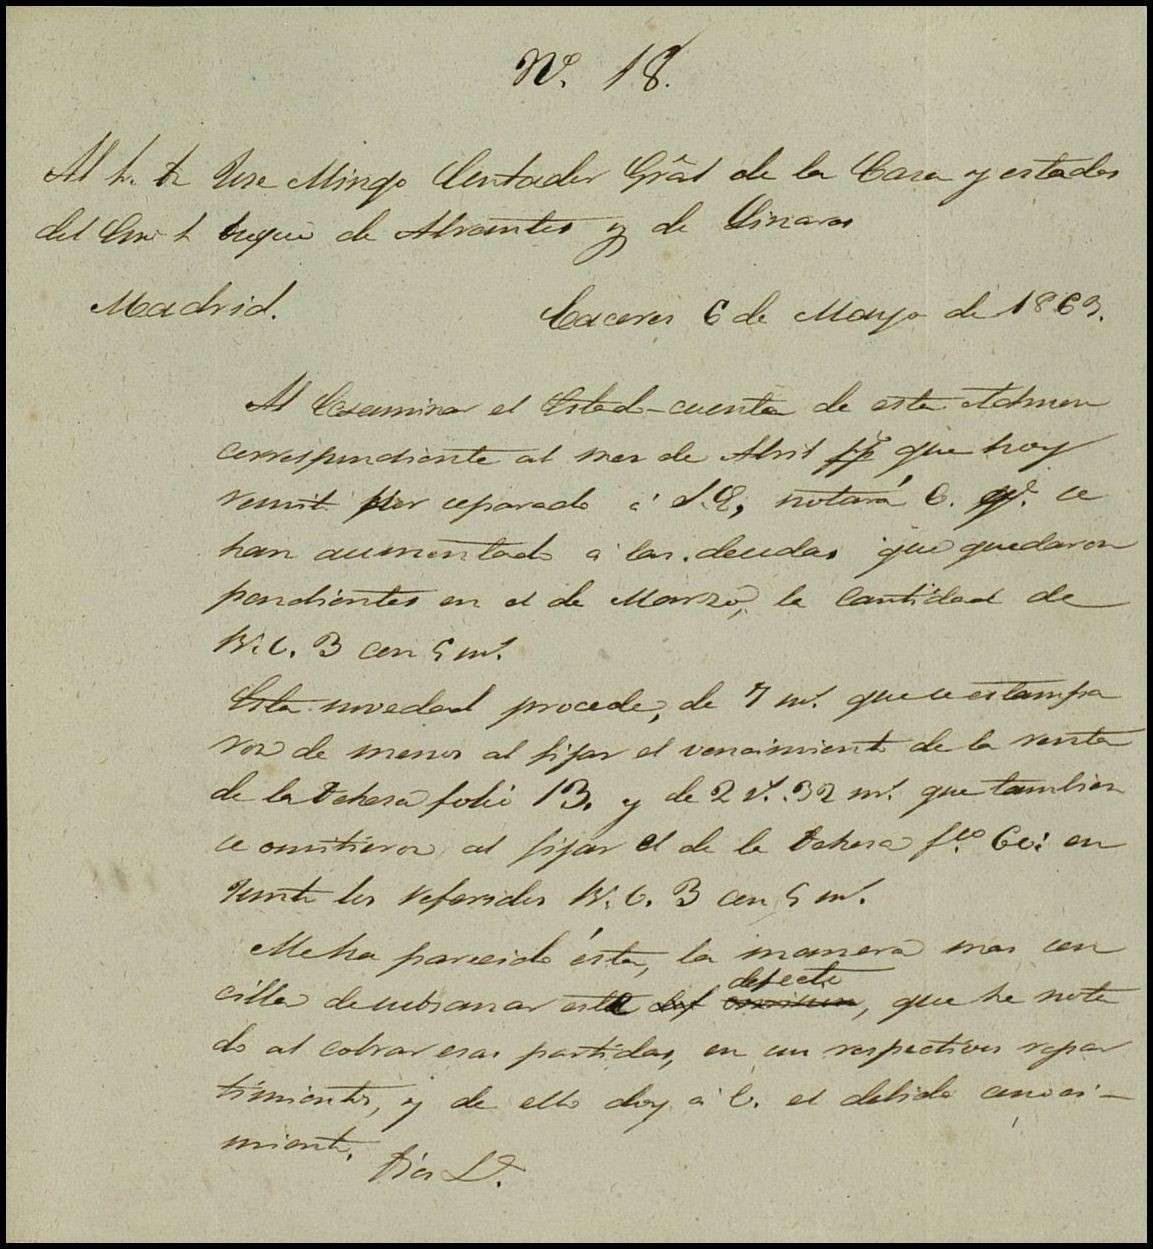 Nº. 18.
Al Sr. Dn Jose Mingo Contador Grâl de la Casa y estados
del Exmo S. Duque de Abrantes y de Linares
Madrid. Caceres 6 de Mayo de 1863.
Al Examinar el Estado-cuenta de esta Admon
correspondiente al mes de Abril pp que hoy
remito por separado á S.E, notará V. qe. se
han aumentado a las deudas que quedaron
pendientes en el de Marzo, la cantidad de
3 con 5 ms.
Esta novedad procede, de 7 ms. que se estampa
ron de menos al fijar el vencimiento de la renta
de la Dehesa folio 13. y de 2 rs. 32 ms. que tambien
se omitieron al fijar el de la Dehesa fº. 60: en
Junto los referidos 3 con 5 ms.
Me ha parecido ésta, la manera mas cen
cilla de subsanar este def omision defecto, que he nota
do al cobrar esas partidas, en sus respectivos repar
timientos, y de ello doy á V. el debido conoci-
miento.
Dios